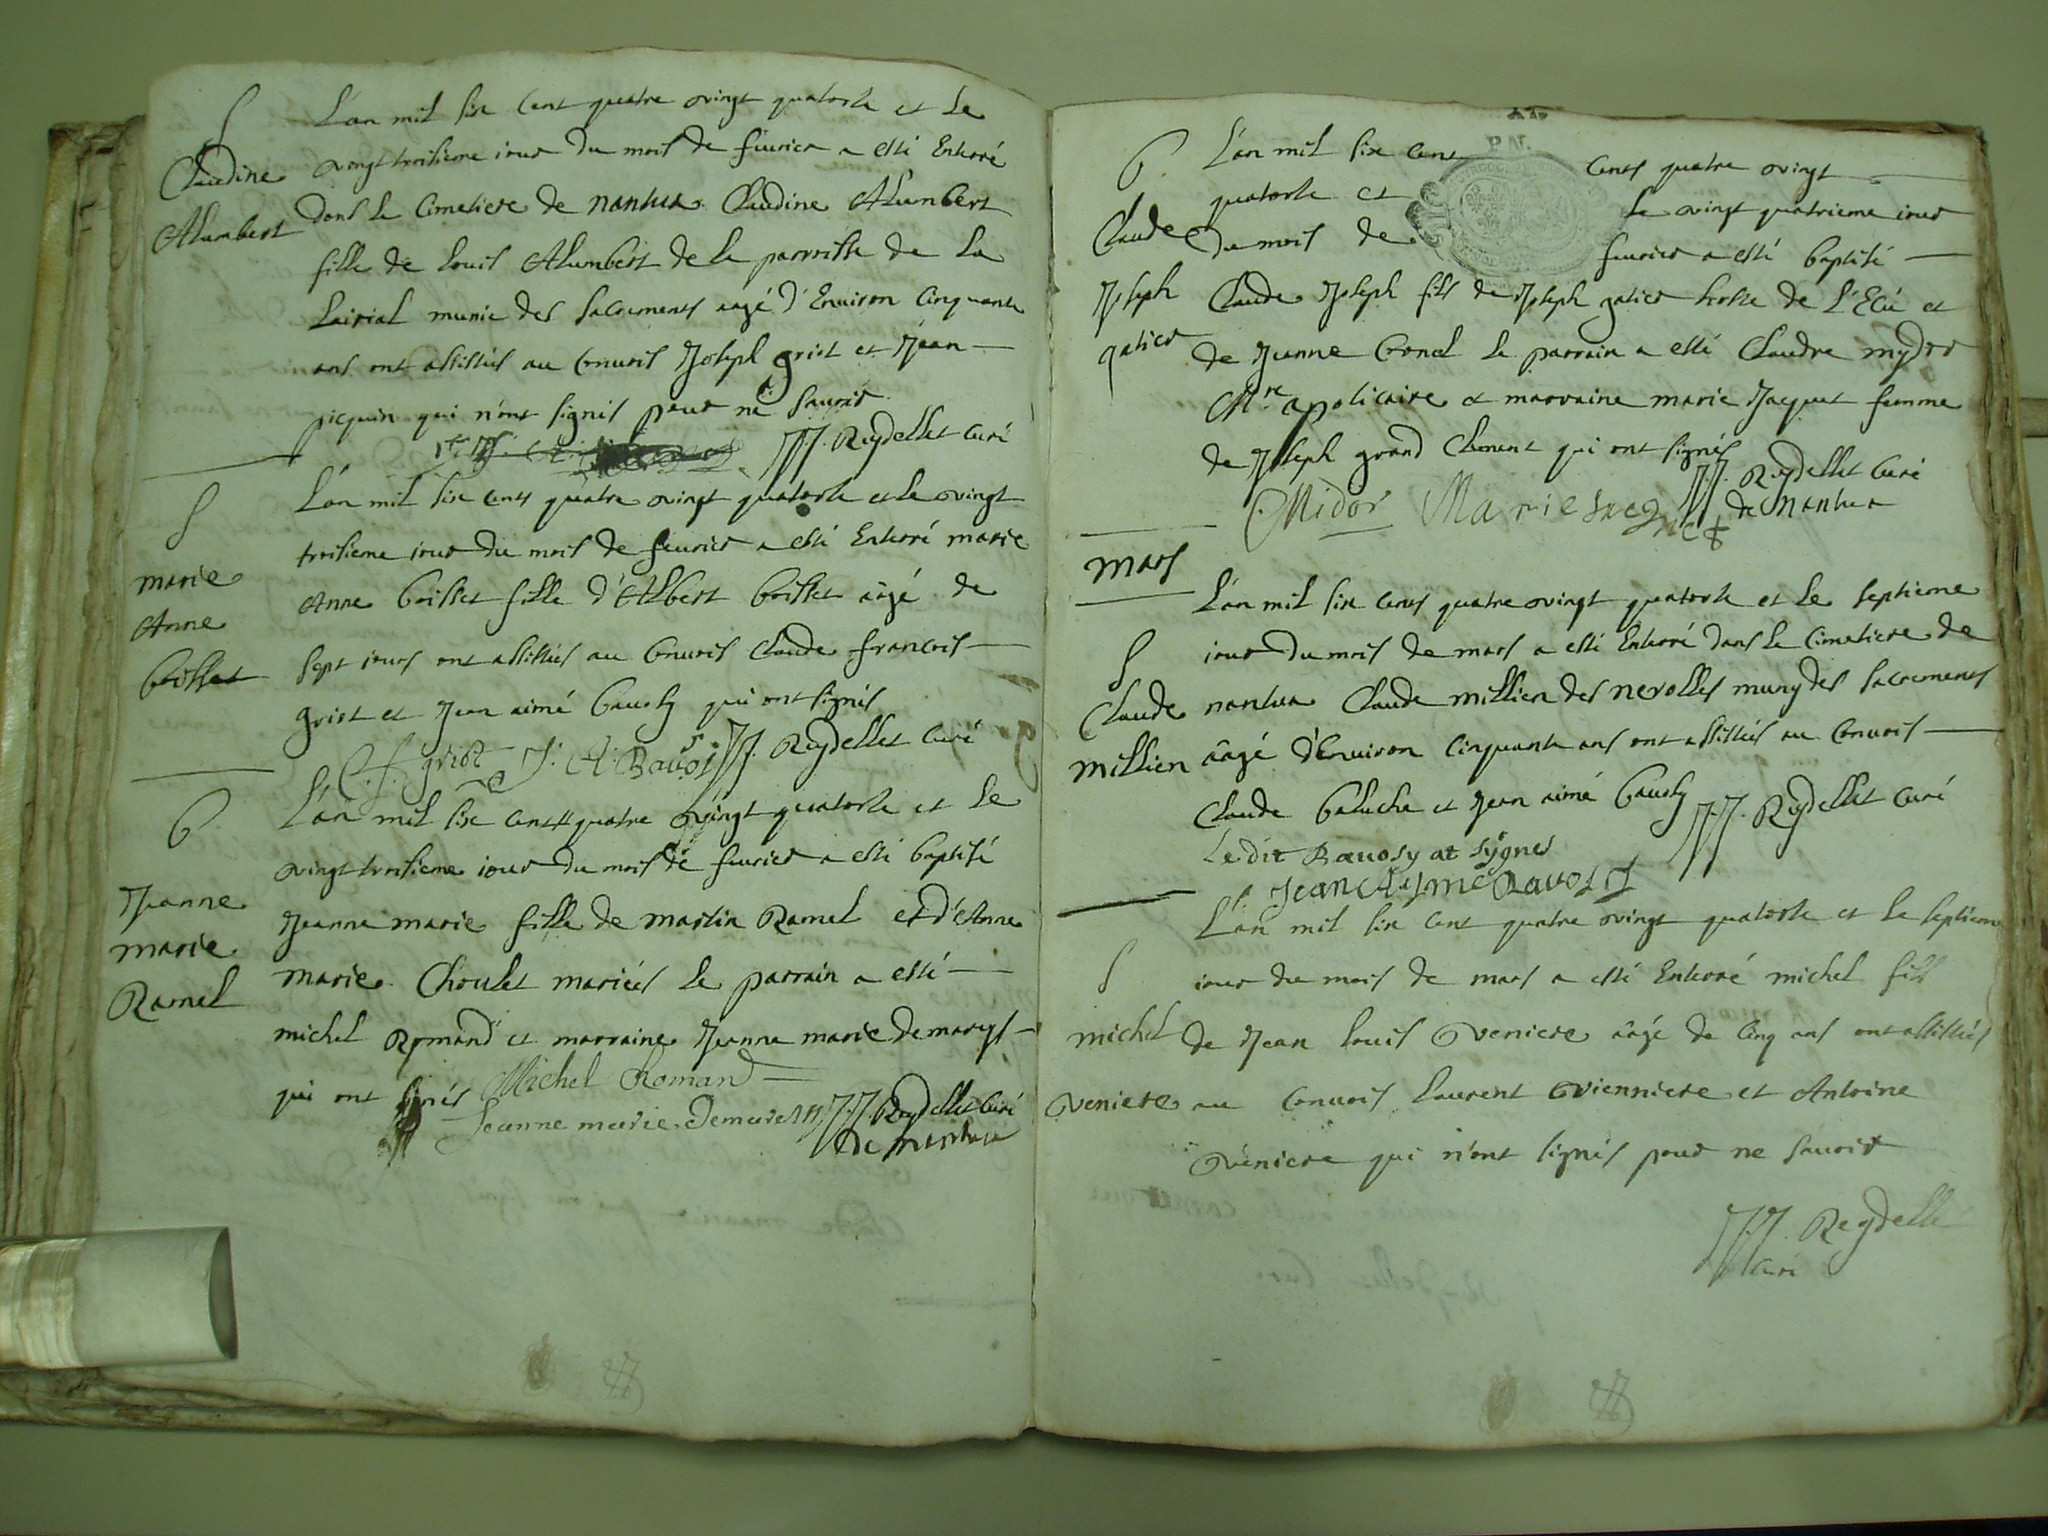 S
Claudine
Alumbert
L'an mil six cent quatre vingt quatorse et le
vingt troisieme iour du mois de feurier a esté Enterré
dans le Cimetiere de nantua Claudine Alumbert
fille de Louis Alumbert de la parroisse de La
munie des Sacrements aagé d'Enuiron Cinquante
ans ont assistés au Conuois Joseph griot et Jean
picquin qui n'ont signés pour ne scauoir
J.J. Reydellet Curé
S
marie
Anne
boisset
L'an mil six cents quatre vingt quatorse et le vingt
troisieme iour du mois de feurier a esté Enterré marie
Anne boisset fille d'Albert boisset âagé de
sept iours ont assistés au Conuois Claude francois
griot et Jean aimé bauosy qui ont signés
C. f. griot J. A. Bauosy J.J. Reydellet Curé
B
Jeanne
marie
Ramel
L'an mil six cents quatre vingt quatorse et le
vingt troisieme iour du mois de feurier a esté baptisé
Jeanne marie fille de martin Ramel et d'Anne
marie Choulet mariés le parrain a esté
michel Romand et marraine Jeanne marie demarest
qui ont signés Michel Romand
Jeanne marie Demarest J.J. Reydellet Curé
de nantua
B
Claude
Joseph
gatier
L'an mil six cent cents quatre vingt
quatorse et le vingt quatrieme iour
du mois de feurier a esté baptisé
Claude Joseph fils de Joseph gatier hoste de L'Ecu et
de Jeanne bonel le parrain a esté Claudre mydor
Mre apoticaire et marraine marie Jacquet femme
de Joseph grand Clement qui ont signés
J.J. Reydellet Curé
C Midor Marie Jacquet de Nantua
mars
S
Claude
millien
L'an mil six cents quatre vingt quatorse et le septieme
iour du mois de mars a esté Enterré dans le Cimetiere de
nantua Claude millien des nerolles muny des sacrements
âagé d'Enuiron Cinquante ans ont assistés au Conuois
Claude baluche et Jean aimé bauosy
J.J. Reydellet Curé
Le dit Bauosy at sygnes
Jean Aymé Bauosy
S
michel
Veniere
L'an mil six cent quatre vingt quatorse et le septieme
iour du mois de mars a esté Enterré michel fils
de Jean Louis Veniere âagé de Cinq ans ont assistés
au Conuois Laurent Vienniere et Antoine
Veniere qui n'ont signés pour ne scauoir
J.J. Reydelle
Curé